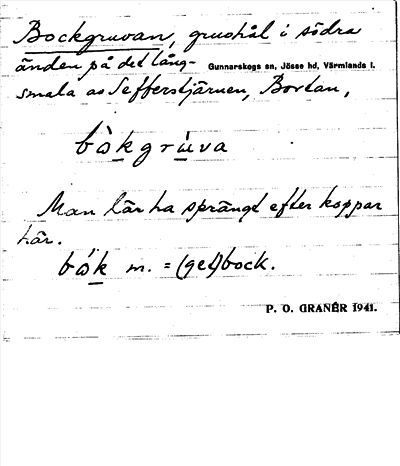 Bockgruvan, gruvhål i södra
änden på det lång-
Gunnarskogs sn, Jösse hd, Värmlands l.
smala av Sefferstjärnen, Bortan,
bò̱kgrù̱va
Man lär ha sprängt efter koppar
här.
bò̱k m. = (get)bock.
P. O. GRANÉR 1941.